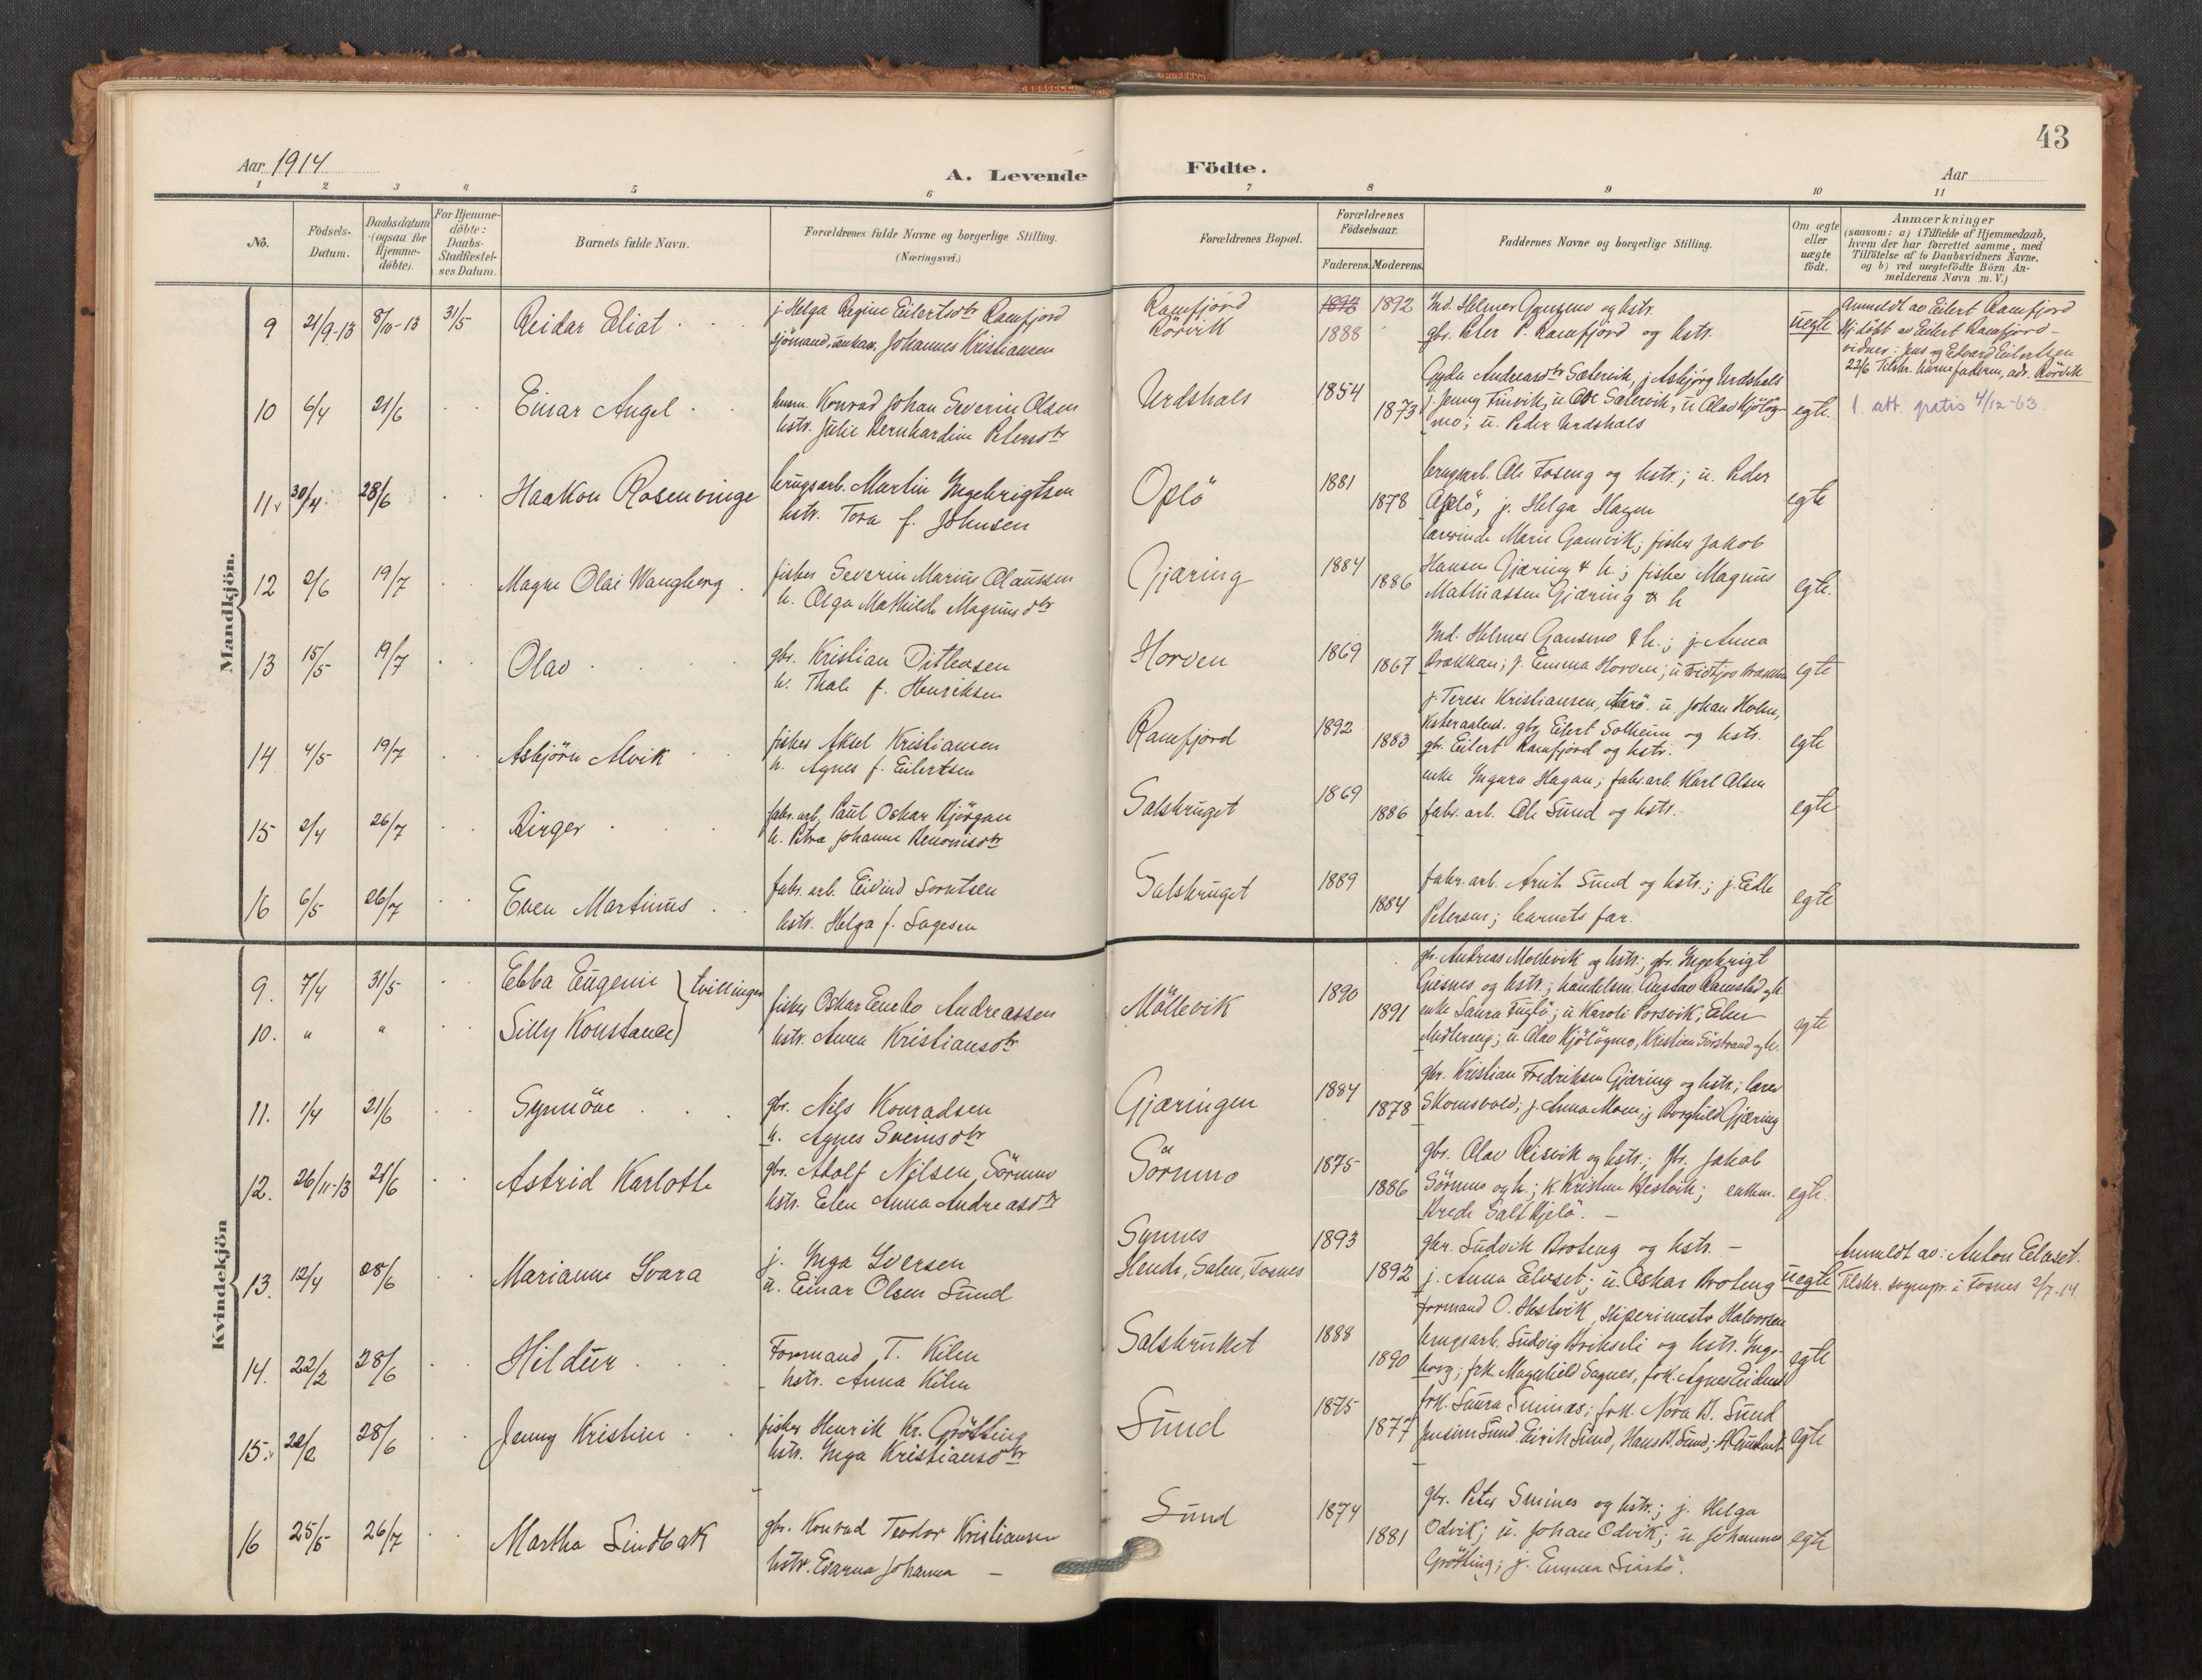 43
Aar 1914
A. Levende Födte.
Aar
1 2 3 4 5 6 7 8 9 10 11
No.
Födsels-
Datum.
Daabsdatum
(ogsaa for
Hjemme-
döbte).
For Hjemme-
döbte:
Daabs-
Stadfæstel-
ses Datum.
Barnets fulde Navn.
Forældrenes fulde Navne og borgerlige Stilling.
(Næringsvei.)
Forældrenes Bopæl.
Forældrenes
Födselsaar.
Faderens. Moderens.
Faddernes Navne og borgerlige Stilling.
Om ægte
eller
uægte
födt.
Anmærkninger
(saasom: a) i Tilfælde af Hjemmedaab,
hvem der har forrettet samme, med
Tilföielse af to Daabsvidners Navne.
og b) ved uægtefödte Börn An-
melderens Navn m. V.)
Mandkjön.
9 21/9-13 8/10-13 31/5 Reidar Eliat
j. Helga Regine Eilertsdtr Ramfjord
sjömand, unkar. Johannes Kristiansen
Ramfjord
Rörvik
1892
1888
Ind. Helmer Gansmo og hstr.
gbr. Peter P. Ramfjord og hstr.
uegte
Anmeldt av Eilert Ramfjord
Hj.döbt av Eilert Ramfjord -
vidner: Jens og Edvard Eilertsen
22/6 Tilskr. barnefaderen, adr. Rörvik
10 6/4 21/6 Einar Angel
husm. Konrad Johan Severin Olsen
hstr. Julie Bernhardine Petersdtr
Urdshals
1854
1873
Gyda Andreasdtr Sætervik, j. Asbjörg Urdshals
j. Jenny Finvik, u. Ole Sætervik, u. Olav Kjölög-
mo; u. Peder Urdshals
egte.
1. att. gratis 4/12-63.
11 30/4 28/6 Haakon Rosenvinge
brugsarb. Martin Ingebrigtsen
hstr. Tora f. Johnsen
Oplö
1881
1878
brugsarb. Ole Foseng og hstr.; u. Peder
Oplö, j. Helga Hagen
egte
12 2/6 19/7 Magne Olai Wangberg
fisker Severin Marius Olaussen
h. Olga Mathilde Magnusdtr
Gjæring
1884
1886
lærerinde Marie Gansvik; fisker Jakob
Hansen Gjæring & h.; fisker Magnus
Mathiassen Gjæring & h
egte.
13 15/5 19/7 Olav
gbr. Kristian Ditlevsen
h. Thale f. Henriksen
Horven
1869
1867
Ind. Helmer Gansmo & h.; j. Anna
Brækkan; j. Emma Horven; u. Fridtjov Brækkan
egte
14 4/5 19/7 Asbjörn Alvik
fisker Aksel Kristiansen
h. Agnes f. Eilertsen
Ramfjord
1892
1883
j. Terese Kristiansen, u. Johan Holm,
gbr. Eilert Solheim og hstr.
gbr. Eilert Ramfjord og hstr.
egte
15 2/4 26/7 Birger
fabr.arb. Paul Oskar Kjörgan
h. Petra Johanne Benonisdtr
Salsbruget
1869
1886
enke Ingara Hagan; fabr.arb. Karl Olsen
fabr. arb. Ole Sund og hstr.
egte
16 6/5 26/7 Even Martinus
fabr. arb. Eivind Lorntsen
hstr. Helga f. Sagesen
Salsbruget
1889
1884
fabr. arb. Arnt Sund og hstr.; j. Edle
Petersen; barnets far.
egte
Kvindekjön
9. 7/4 31/5 Ebba Eugenie
10. " " Silly Konstance
tvillinger
fisker Oskar Enebo Andreassen
hstr. Anna Kristiansdtr
Möllevik
1890
1891
gbr. Andreas Möllevik og hstr.; gbr. Ingebrigt
Gjesnes og hstr.; handelsm. Gustav Ramstad og h.
enke Laura Fuglö; u. Karoli Porsvik; Elen
u. Olav Kjölögmo, Kristian Sörstrand og h.
egte
11. 1/4 21/6 Synnöve
gbr. Nils Konradsen
h. Agnes Sveinsdtr
Gjæringen
1884
1878
gbr. Kristian Fredriksen Gjæring og hstr.; lærer
Skomsvold; j. Anna Moen; j. Borghild Gjæring
12. 26/11-13 21/6 Astrid Karlotte
gbr. Adolf Nilsen Sörmo
hstr. Elen Anna Andreasdtr
Sörmo
1875
1886
gbr. Olav Reisvik og hstr.; gbr. Jakob
Sörmo og h.; k. Kristine Hestvik; enkem.
Brede Saltkjelö. -
egte.
13. 12/4 28/6 Marianne Svara
j. Inga Iversen
u. Einar Olsen Sund
Synnes
Salen, Fosnes
1893
1892
gbr. Ludvik Broteng og hstr. -
j. Anna Elvset; u. Oskar Broteng
uegte
Anmeldt av: Anton Elvset.
Tilskr. sognepr. i Fosnes 2/7-14
14. 22/2 28/6 Hildur
Formand T. Kilen
hstr. Anna Kilen
Salsbruket
1888
1890
formand O. Hestvik, sliperimester Halvorsen
brugsarb. Ludvig Brikseli og hstr. Inge-
borg; frk. Magnhild Sagnes, frk. Agnes
egte
15. 22/2 28/6 Jenny Kristine
fisker Henrik Kr. Grötting
hstr. Inga Kristiansdtr
Sund
1875
1877
frk. Laura Smines; frk. Nora B. Sund
Jensine Sund. Eirik Sund, Hans B. Sund;
egte
16 25/5 26/7 Martha Lindbak
gbr. Konrad Teodor Kristiansen
hstr. Evarna Johanna -
Sund
1874
1881
gbr. Peter Smines og hstr.; j. Helga
Odvik; u. Johan Odvik; u. Johannes
Grötting; j. Emma
egte